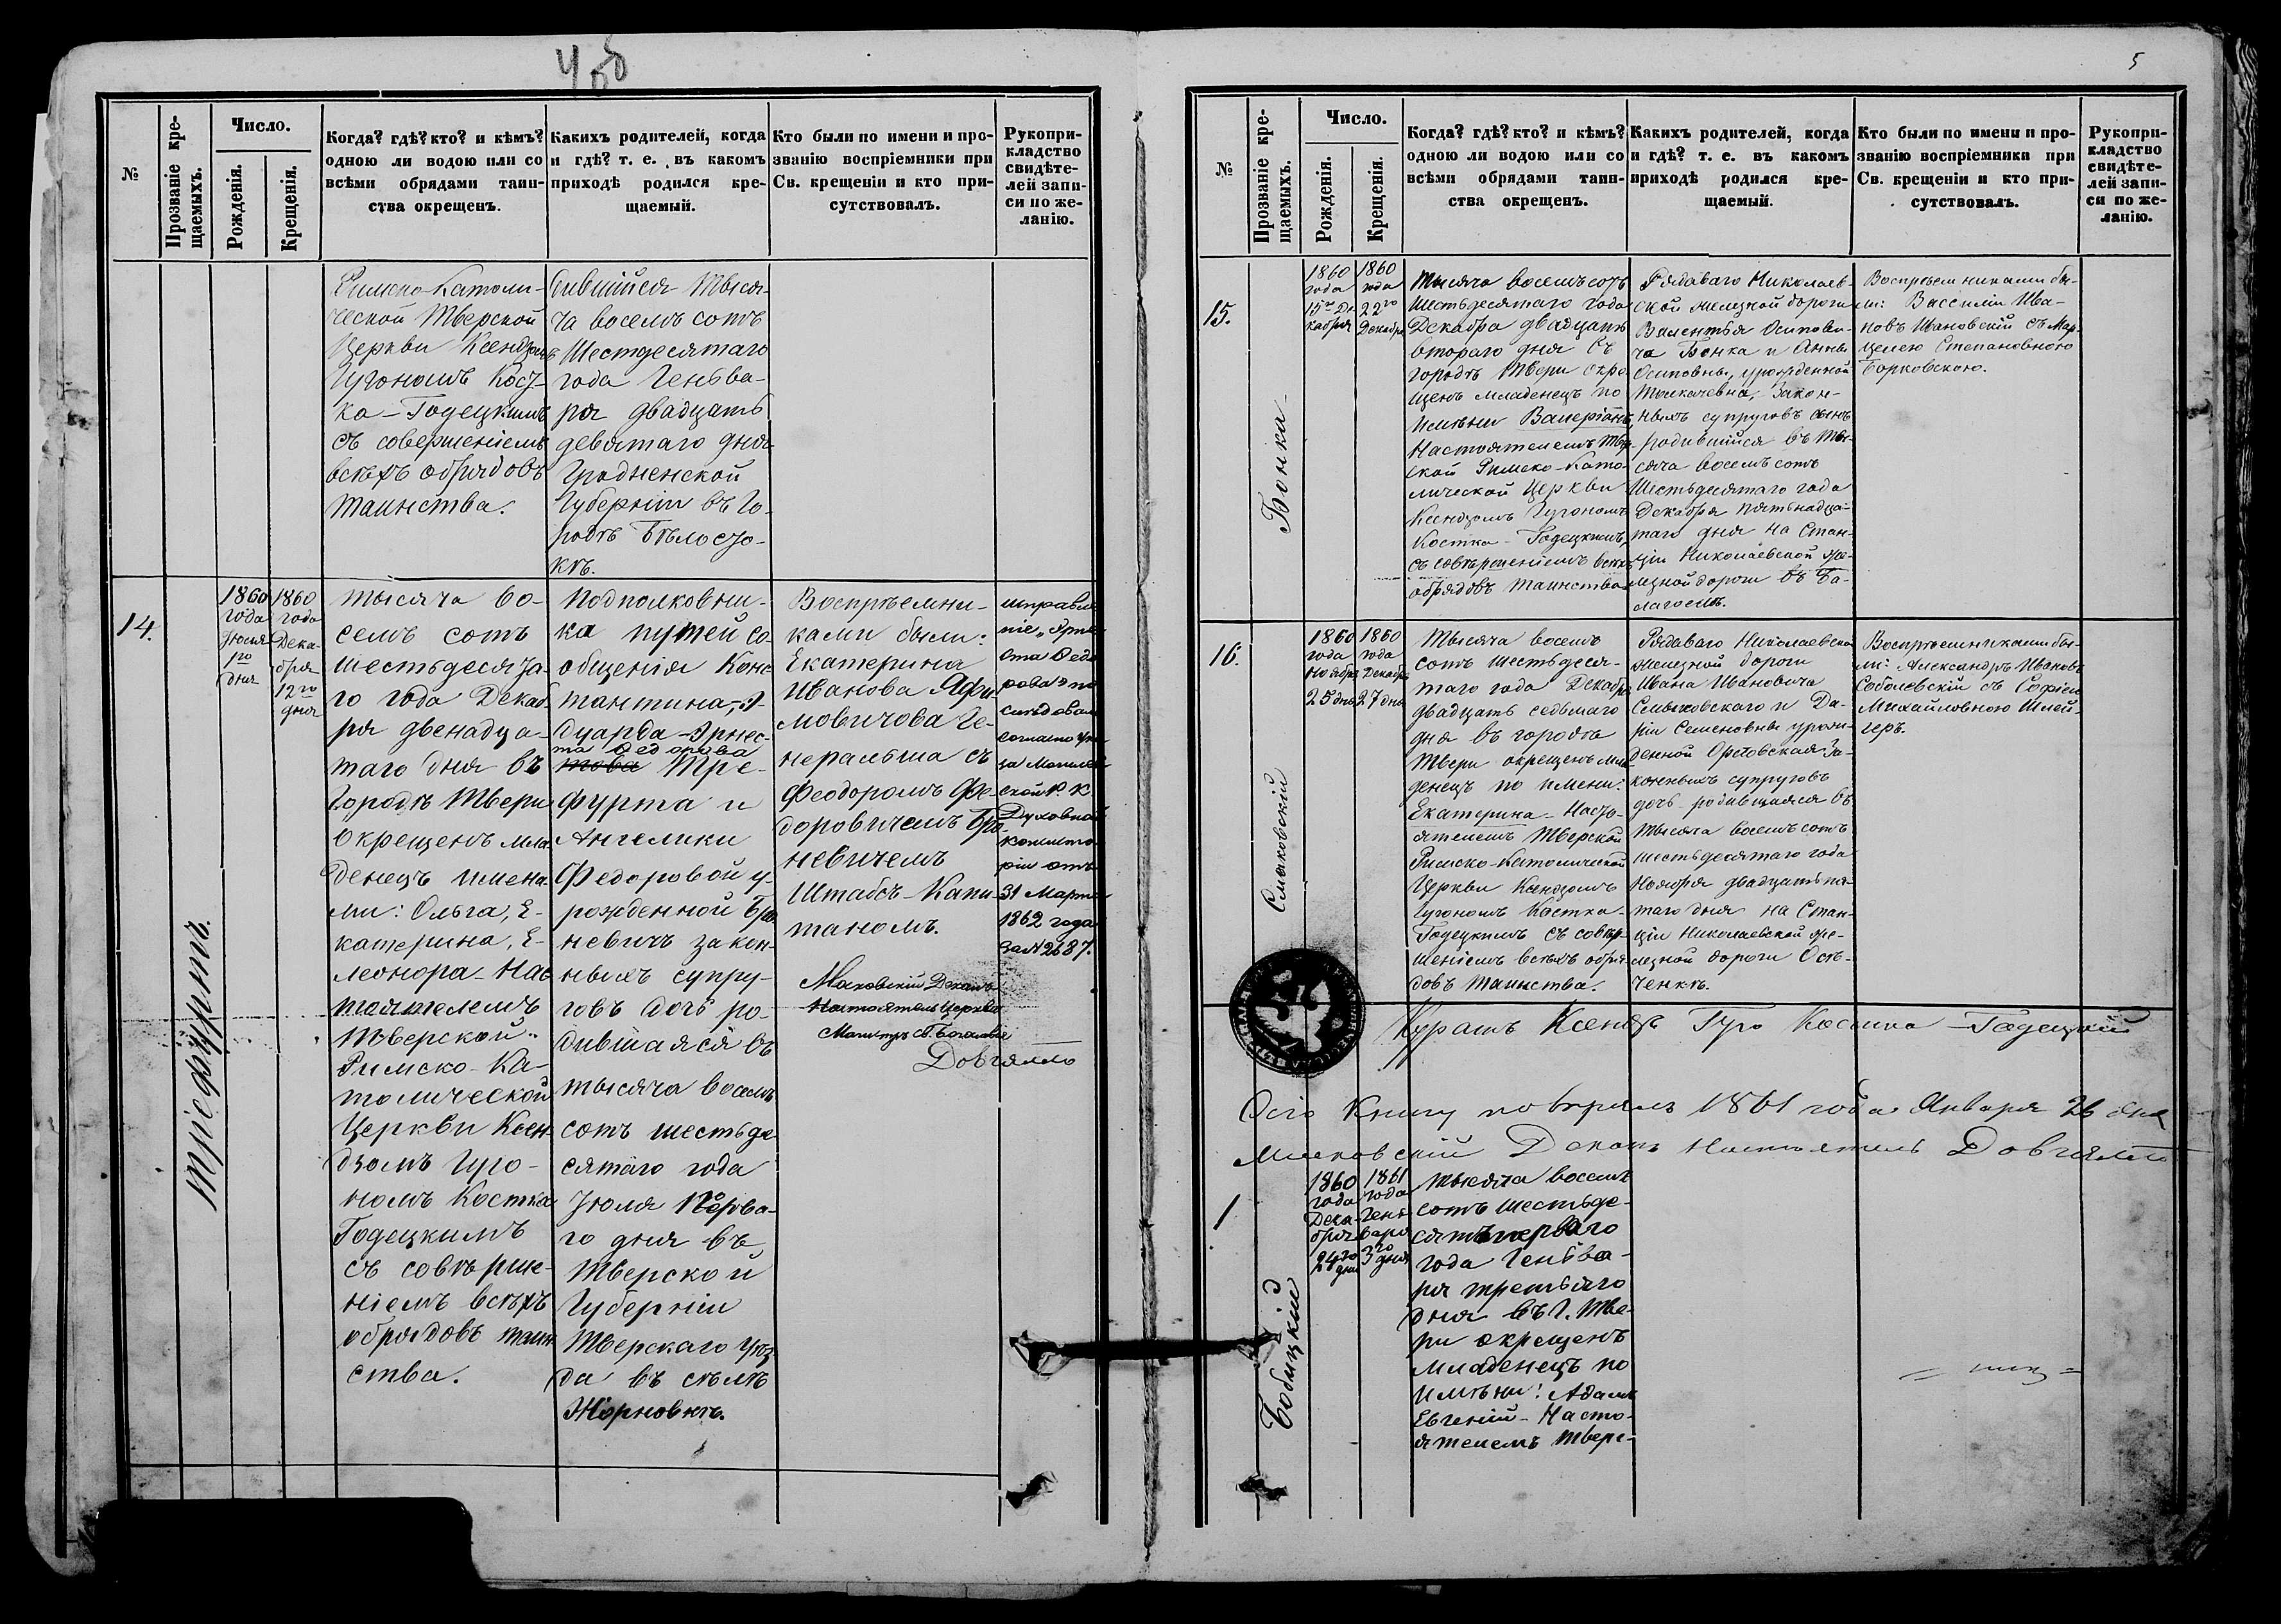 5
№
Прозваніе кре-
щаемыхъ.
Число.
Рожденія.
Крещенія.
Когда? гдѣ? кто? и кѣмъ?
одною ли водою или со
всѣми обрядами таин-
ства окрещенъ.
Какихъ родителей, когда
и гдѣ? т. е. въ какомъ
приходѣ родился кре-
щаемый.
Кто были по имени и про-
званію воспріемники при
Св. крещеніи и кто при-
сутствовалъ.
Рукопри-
кладство
свидѣте-
лей запи-
си по же-
ланію.
Римско-Католи-
ческой Тверской
Церкви Ксендзомъ
Гугономъ Кост-
ка-Годецкимъ
съ совершеніемъ
всѣхъ обрядовъ
таинства.
бившійся тыся-
ча восемъ сотъ
Шестдесятаго
года Генва-
ря двадцать
девятаго дня
Гродненской
Губерніи въ Го-
родѣ Бѣлосто-
кѣ.
14.
Тріефуртъ.
1860
года
Іюля
1го
дня
1860
года
Дека-
бря
12го
дня
Тысяча во-
семъ сотъ
шестьдесята-
го года Декаб-
ря двенадца-
таго дня въ
Городѣ Твери
окрещенъ мла-
денецъ имена-
ми: Ольга, Е-
катерина, Е-
леонора - Нас-
тоятелемъ
Тверской
Римско-Ка-
толической
Церкви Ксен-
дзомъ Гуго-
номъ Костка
Годецкимъ
съ совѣрше-
ніемъ всѣхъ
обрядовъ таин-
ства.
Подполковни-
ка путей со-
общенія Конс-
тантина, Э-
дуарда-Эрнес-
та Федорова
това Тре-
фурта и
Ангелики
Федоровой у-
рожденной Бро-
невичъ закон-
ныхъ супру-
говъ дочь ро-
дившаяся въ
тысяча восемъ
сотъ шестьде-
сятаго года
Іюля Перва-
го дня въ
Тверской
Губерніи
Тверскаго Уѣз-
да въ сѣлѣ
Жорновкѣ.
Воспрѣемни-
ками были:
Екатерина
Иванова Яфи-
мовичова Ге-
неральша съ
Феодоромъ Фе-
доровичемъ Бро-
невичемъ
Штабсъ-Капи-
таномъ.
Московскій Деканъ
Настоятель Церкви
Магистръ Св. Богословія
Довгялло
исправле-
ніе „Эрне-
ста Федо-
рова" по-
слѣдовало
согласно ука-
за Могилев-
ской Р. К.
Духовной
Консисто-
ріи отъ
31 Марта
1862 года
за № 2687.
№
Прозваніе кре-
щаемыхъ.
Число.
Рожденія.
Крещенія.
Когда? гдѣ? кто? и кѣмъ?
одною ли водою или со
всѣми обрядами таин-
ства окрещенъ.
Какихъ родителей, когда
и гдѣ? т. е. въ какомъ
приходѣ родился кре-
щаемый.
Кто были по имени и про-
званію воспріемники при
Св. крещеніи и кто при-
сутствовалъ.
Рукопри-
кладство
свидѣте-
лей запи-
си по же-
ланію.
15.
Бонка
1860
года
15го Де-
кабря
1860
года
22го
Декабря
Тысяча восемъ сотъ
Шестьдесятаго года
Декабра двадцать
втораго дня въ
городѣ Твери окре-
щенъ младенецъ по
имѣни Валеріанъ
Настоятелемъ Твер-
ской Римско-Като-
лической Церкви
Ксендзомъ Гугономъ
Костка-Годецкимъ,
съ совѣршеніемъ всѣхъ
обрядовъ таинства
Рядаваго Николаев-
ской желѣзной дороги
Валентія Осипови-
ча Бонка и Анны
Осиповны, урожденной
Толкачевна, Закон-
ныхъ супруговъ сынъ
родившійся въ ты-
сяча восемъ сотъ
Шестьдесятаго года
Декабря пятьнадца-
таго дня на Стан-
ціи Николаевской же-
лезной дороги въ Ба-
лагоемъ.
Воспрѣемниками бы-
ли: Вассилій Ива-
новъ Ивановскій съ Мар-
целею Степановною
Борковскою.
16.
Смаковскій
1860
года
Ноября
25 дня
1860
года
Декабря
27 дня
Тысяча восемъ
сотъ шестьдеся-
таго года Декабря
двадцать седьмаго
дня въ городѣ
Твери окрещенъ мла-
денецъ по имени:
Екатерина - Насто-
ятелемъ Тверской
Римско-Католической
Церкви Ксендзомъ
Гугономъ Костка-
Годецкимъ съ совѣр-
шеніемъ всѣхъ обря-
довъ таинства.
Рядаваго Николаевской
желѣзной дороги
Ивана Ивановича
Смыковскаго и Да-
ріи Семеновны урож-
денной Орловская За-
конныхъ супруговъ
дочь родившаяся въ
тысяча восемъ сотъ
шестьдесятаго года
Ноября двадцать пя-
таго дня на Стан-
ціи Николаевской же-
лѣзной дороги Осѣ-
ченкѣ.
Воспрѣемниками бы-
ли: Александръ Ивановъ
Соболевскій съ Софіею
Михайловною Шлей-
геръ.
Куратъ Ксендзъ Гуго Костка-Годецкій
Сію Книгу повѣрялъ 1861 года Января 26 дня
Московскій Деканъ Настоятель Довгялло
1
Бобицкій
1860
года
Дека-
бря
24го
дня
1861
года
Ген-
варя
3го
дня
Тысяча восемъ
сотъ шестьде-
сятъ перваго
года Генва-
ря третьяго
дня въ Г. Тве-
ри окрещенъ
младенецъ по
имѣни: Адамъ
Евгеній - Насто-
ятелемъ Твере-